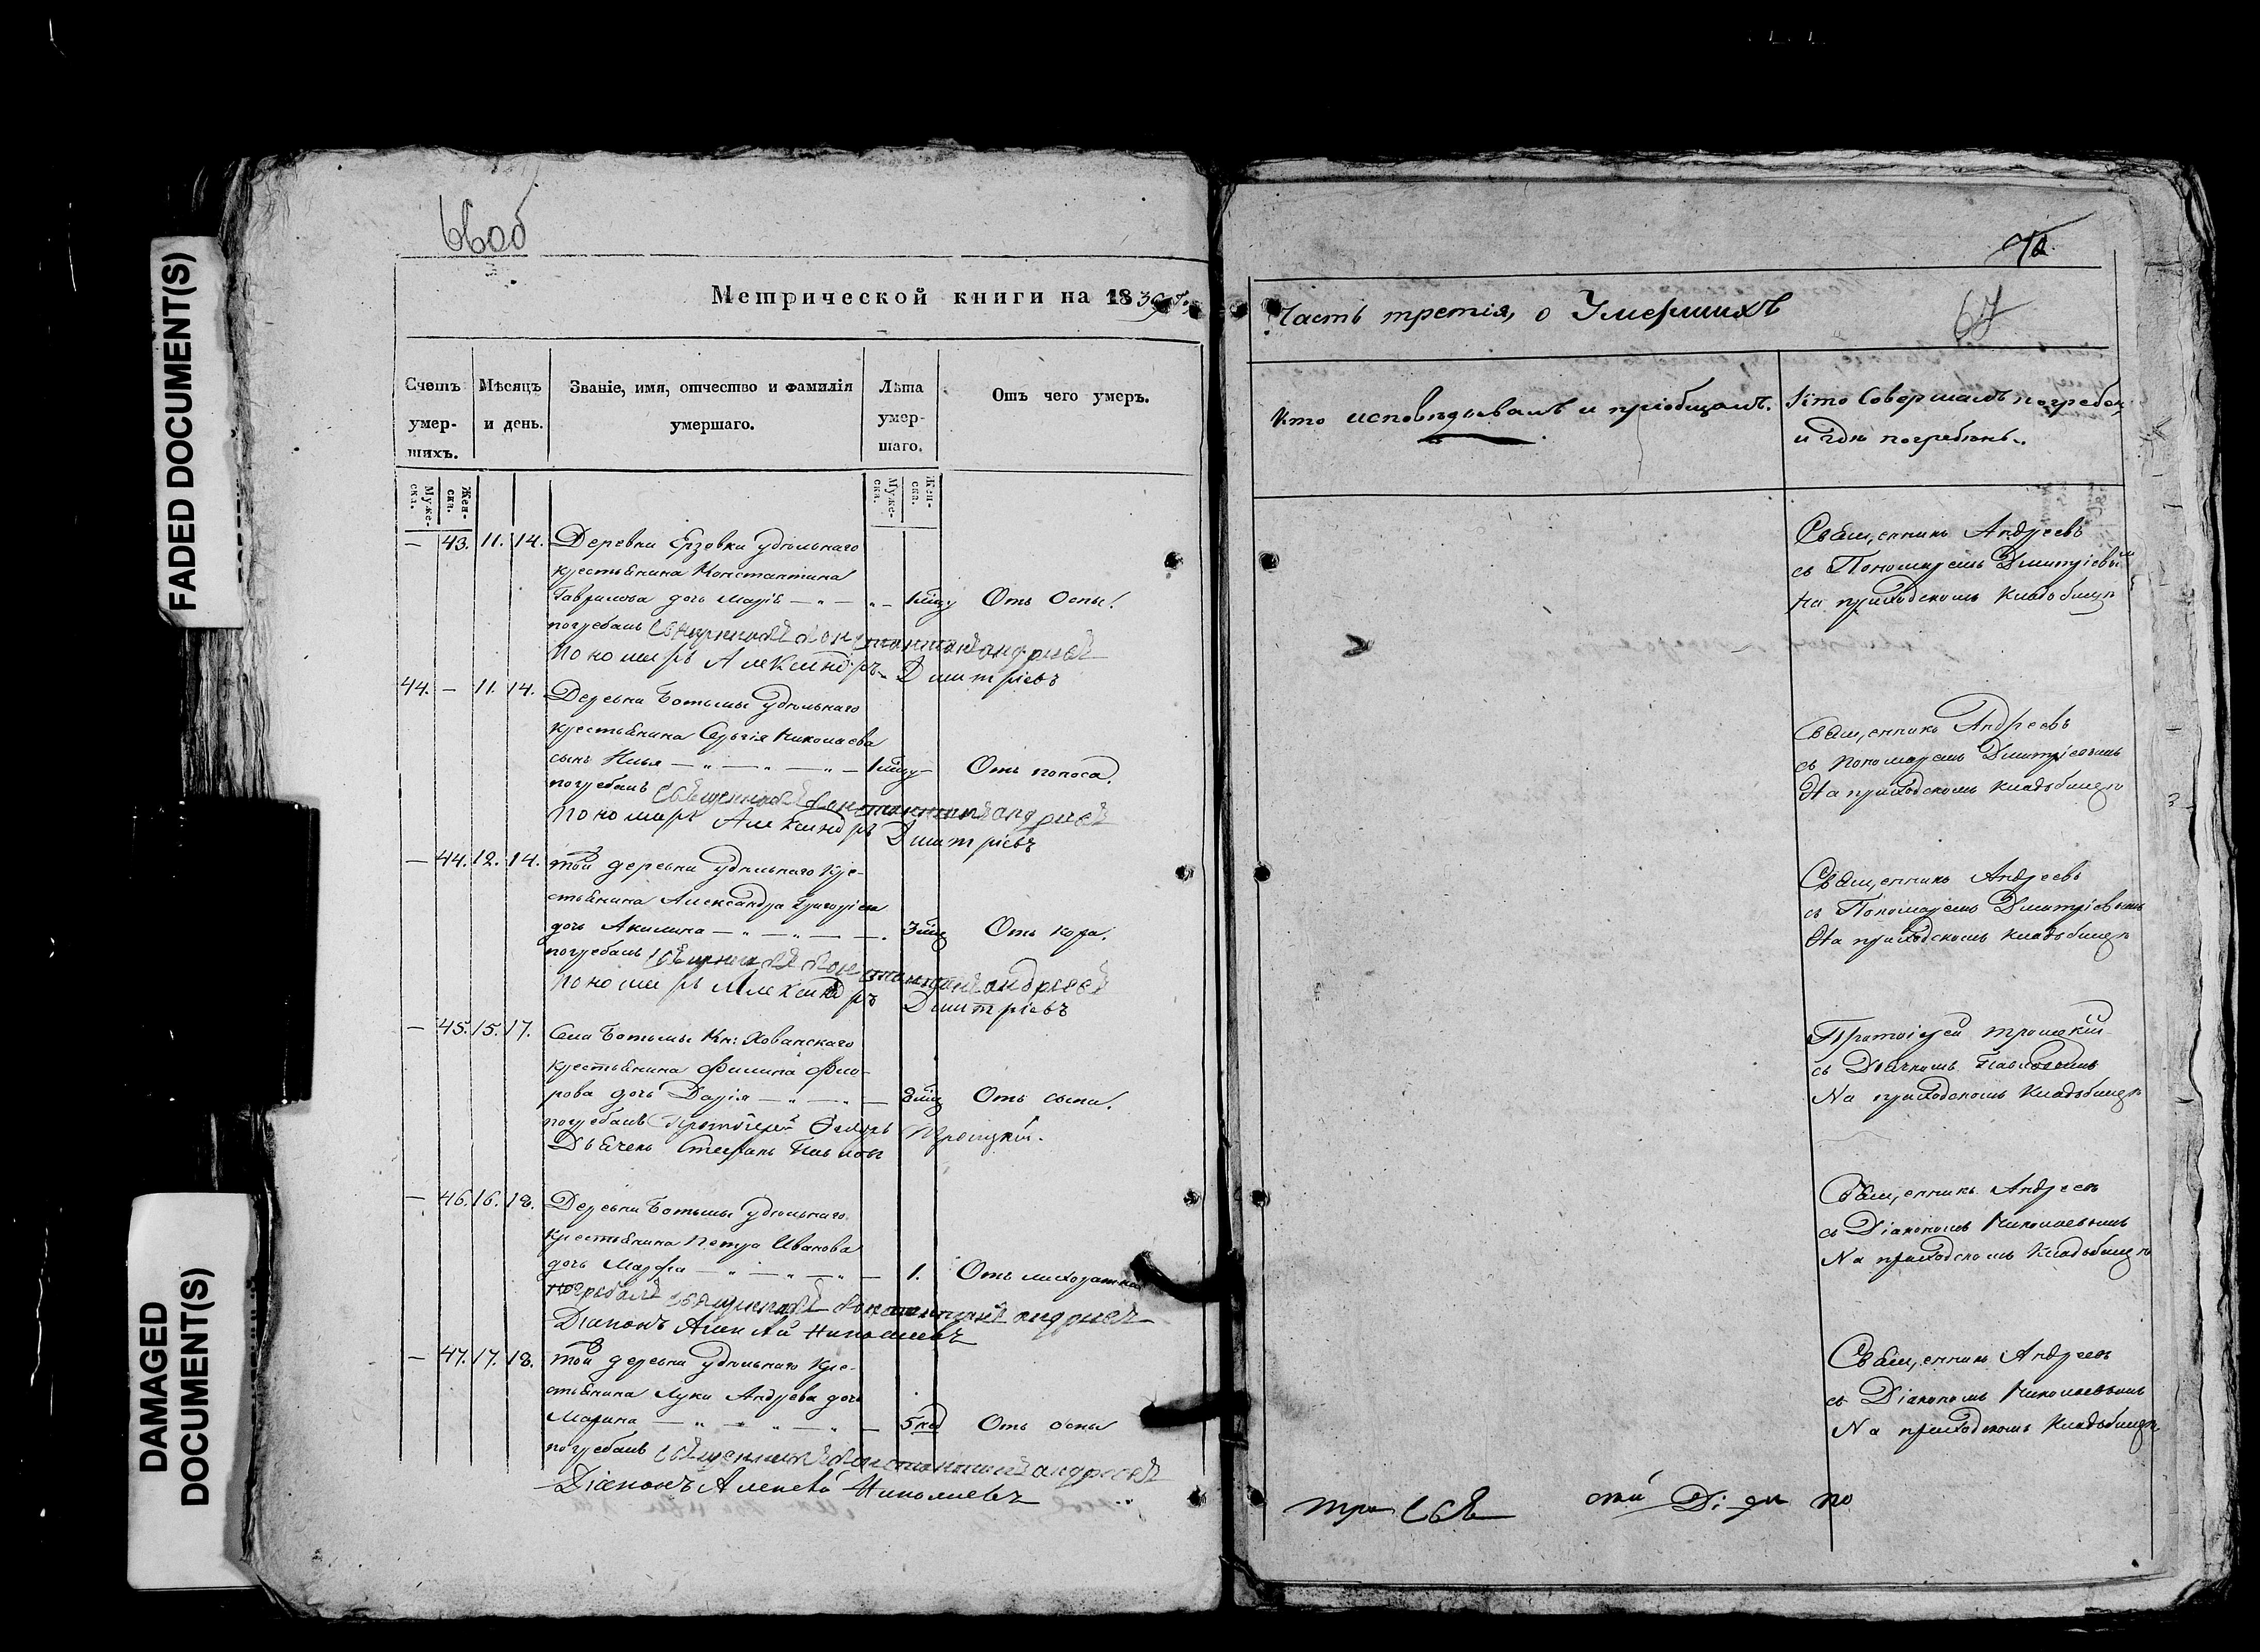 FADED DOCUMENT(S)
DAMAGED
DOCUMENT(S)
66об
Метрической книги на 1839 г.
Счетъ умершихъ.
Мѣсяцъ и день.
Званіе, имя, отчество и фамилія умершаго.
Лѣта умершаго.
Отъ чего умеръ.
Муже-ска.
Жен-ска.
Муже-ска.
Жен-ска.
— 43. 11. 14. Деревни Ерзовки удѣльнаго
крестьянина Константина
Гаврилова дочь Марія — „ — „ — 1 мѣц Отъ Оспы.
погребалъ Священникъ Константинъ Андреевъ
Пономарь Александръ Дмитріевъ
44. — 11. 14. Деревни Ботьмы удѣльнаго
крестьянина Сергія Николаева
сынъ Илья — „ — „ — „ — 1 мѣц — Отъ поноса.
погребалъ Священникъ Константинъ Андреевъ
Пономарь Александръ Дмитріевъ
— 44. 12. 14. той деревни удѣльнаго кре-
стьянина Александра Григоріева
дочь Акилина — „ — „ — — . 3 мѣц Отъ кора.
погребалъ Священникъ Константинъ Андреевъ
Пономарь Александръ Дмитріевъ
— 45. 15. 17. Села Ботьмы Кн: Хованскаго
крестьянина Филипа Фло-
рова дочь Дарія — „ — „ — 8 мѣц Отъ сыпи.
погребалъ Протоіерей Троицкій.
Дьячекъ Стефанъ Павловъ
— 46. 16. 18. Деревни Ботьмы удѣльнаго
крестьянина Петра Иванова
дочь Марфа — „ — „ — „ — 1. Отъ лихорадки
погребалъ Священникъ Константинъ Андреевъ
Діаконъ Алексѣй Николаевъ
— 47. 17. 18. той деревни удѣльнаго кре-
стьянина Луки Андреева дочь
Марина — „ — „ — „ — 5 нед Отъ оспы
погребалъ Священникъ Константинъ Андреевъ
Діаконъ Алексѣй Николаевъ
67
Часть третія, о Умершихъ
Кто исповѣдывалъ и пріобщалъ.
Кто Совершалъ погребен
и гдѣ погребенъ.
Священникъ Андреевъ
съ Пономаремъ Дмитріевым
На приходскомъ кладбищѣ
Священникъ Андреевъ
съ Пономаремъ Дмитріевымъ
На приходскомъ кладбищѣ
Священникъ Андреевъ
съ Пономаремъ Дмитріевымъ
На приходскомъ кладбищѣ
Протоіерей Троицкій
съ Дьячкомъ Павловымъ
На приходскомъ кладбищѣ
Священникъ Андреевъ
съ Діакономъ Николаевымъ
На приходскомъ кладбищѣ
Священникъ Андреевъ
съ Діакономъ Николаевымъ
На приходскомъ кладбищѣ